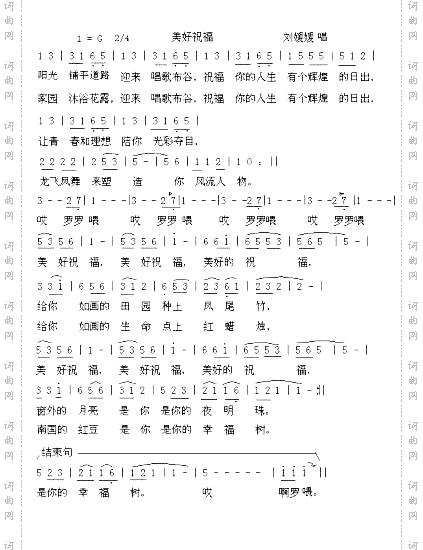 1 = G 2/4 美好祝福 刘媛媛 唱
1 3 | 3 1 6 5 | 1 3 | 3 1 6 5 | 1 3 | 3 1 6 5 | 1 5 5 5 | 5 1 2 |
阳光 铺平道路, 迎来 唱歌布谷, 祝福 你的人生 有个辉煌 的日出,
家园 沐浴花露, 迎来 唱歌布谷, 祝福 你的人生 有个辉煌 的日出,
1 3 | 3 1 6 5 | 1 3 | 3 1 6 5 |
让青 春和理想 陪你 光彩夺目,
2 2 2 2 | 2 5 3 | 5 - | 5 6 | 1 1 2 | 1 0 :||
龙飞凤舞 来塑 造 你 风流人 物。
3 - - 2 7 | 1 - - - | 3 - - 2 7 | 1 - - - | 3 - - 2 7 | 1 - - - | 3 - - 2 7 | 1 - - - |
哎 罗罗喂 哎 罗罗喂 哎 罗罗喂 哎 罗罗喂
5 3 5 6 | 1 - | 5 3 5 6 | 1 - | 6 6 1 | 6 5 5 3 | 5 6 5 | 5 - |
美 好祝 福, 美 好祝 福, 美好的 祝 福,
3 3 1 | 6 5 6 | 3 1 2 | 6 5 3 | 2 3 6 1 | 2 3 2 | 2 - |
给你 如画的 田 园 种上 凤 尾 竹,
给你 如画的 生 命 点上 红 蜡 烛,
5 3 5 6 | 1 - | 5 3 5 6 | 1 - | 6 6 1 | 6 5 5 3 | 5 6 5 | 5 - |
美 好祝 福, 美 好祝 福, 美好的 祝 福,
3 3 1 | 6 5 6 | 3 1 2 | 5 2 3 | 2 1 1 6 | 1 2 1 | 1 - :||
窗外的 月亮 是 你 是你的 夜 明 珠。
南国的 红豆 是 你 是你的 幸 福 树。
结束句
5 2 3 | 2 1 1 6 | 1 2 1 | 1 - | 5 - - - - - | 1 1 1 ||
是你的 幸 福 树。 哎 啊罗 喂。
词曲网